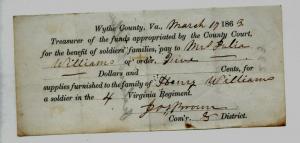 Wythe County, Va., March 19 1863
Treasurer of the funds appropriated by the County Court,
for the benefit of soldiers' families, pay to Mrs Julia
Williams or order, Five
Dollars and Cents, for
supplies furnished to the family of Henry Williams
a soldier in the 4 Virginia Regiment.
Brown
Com'r. District.